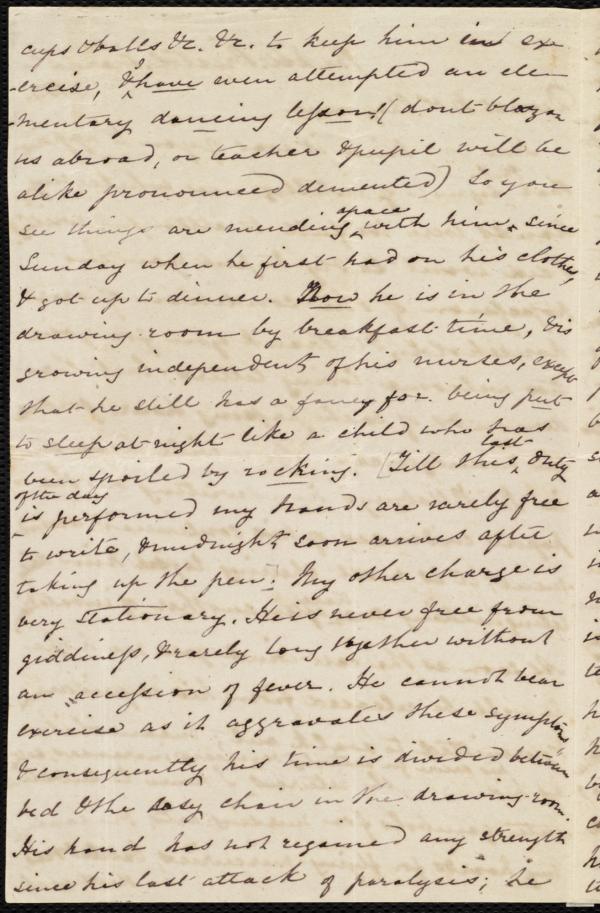 cups & balls &c. &c. to keep him in exe-
-ercise, & I have even attempted an ele-
-mentary dancing lesson! (dont blazon
us abroad, or teacher & pupil will be
alike pronounced demented) So you
see things are mending apace with him, since
Sunday when he first had on his clothes,
& got up to dinner. Now he is in the
drawing-room by breakfast-time, & is
growing independent of his nurses, except
that he still has a fancy for being put
to sleep at night like a child who has
been spoiled by rocking. [Till this last duty
of the day
is performed my hands are rarely free
to write, & midnight soon arrives after
taking up the pen. My other charge is
very stationary. He is never free from
giddiness, & rarely long together without
an accession of fever. He cannot bear
exercise as it aggravates these symptoms
& consequently his time is divided between
bed & the easy chair in the drawing-room.
His hand has not regained any strength
since his last attack of paralysis; he